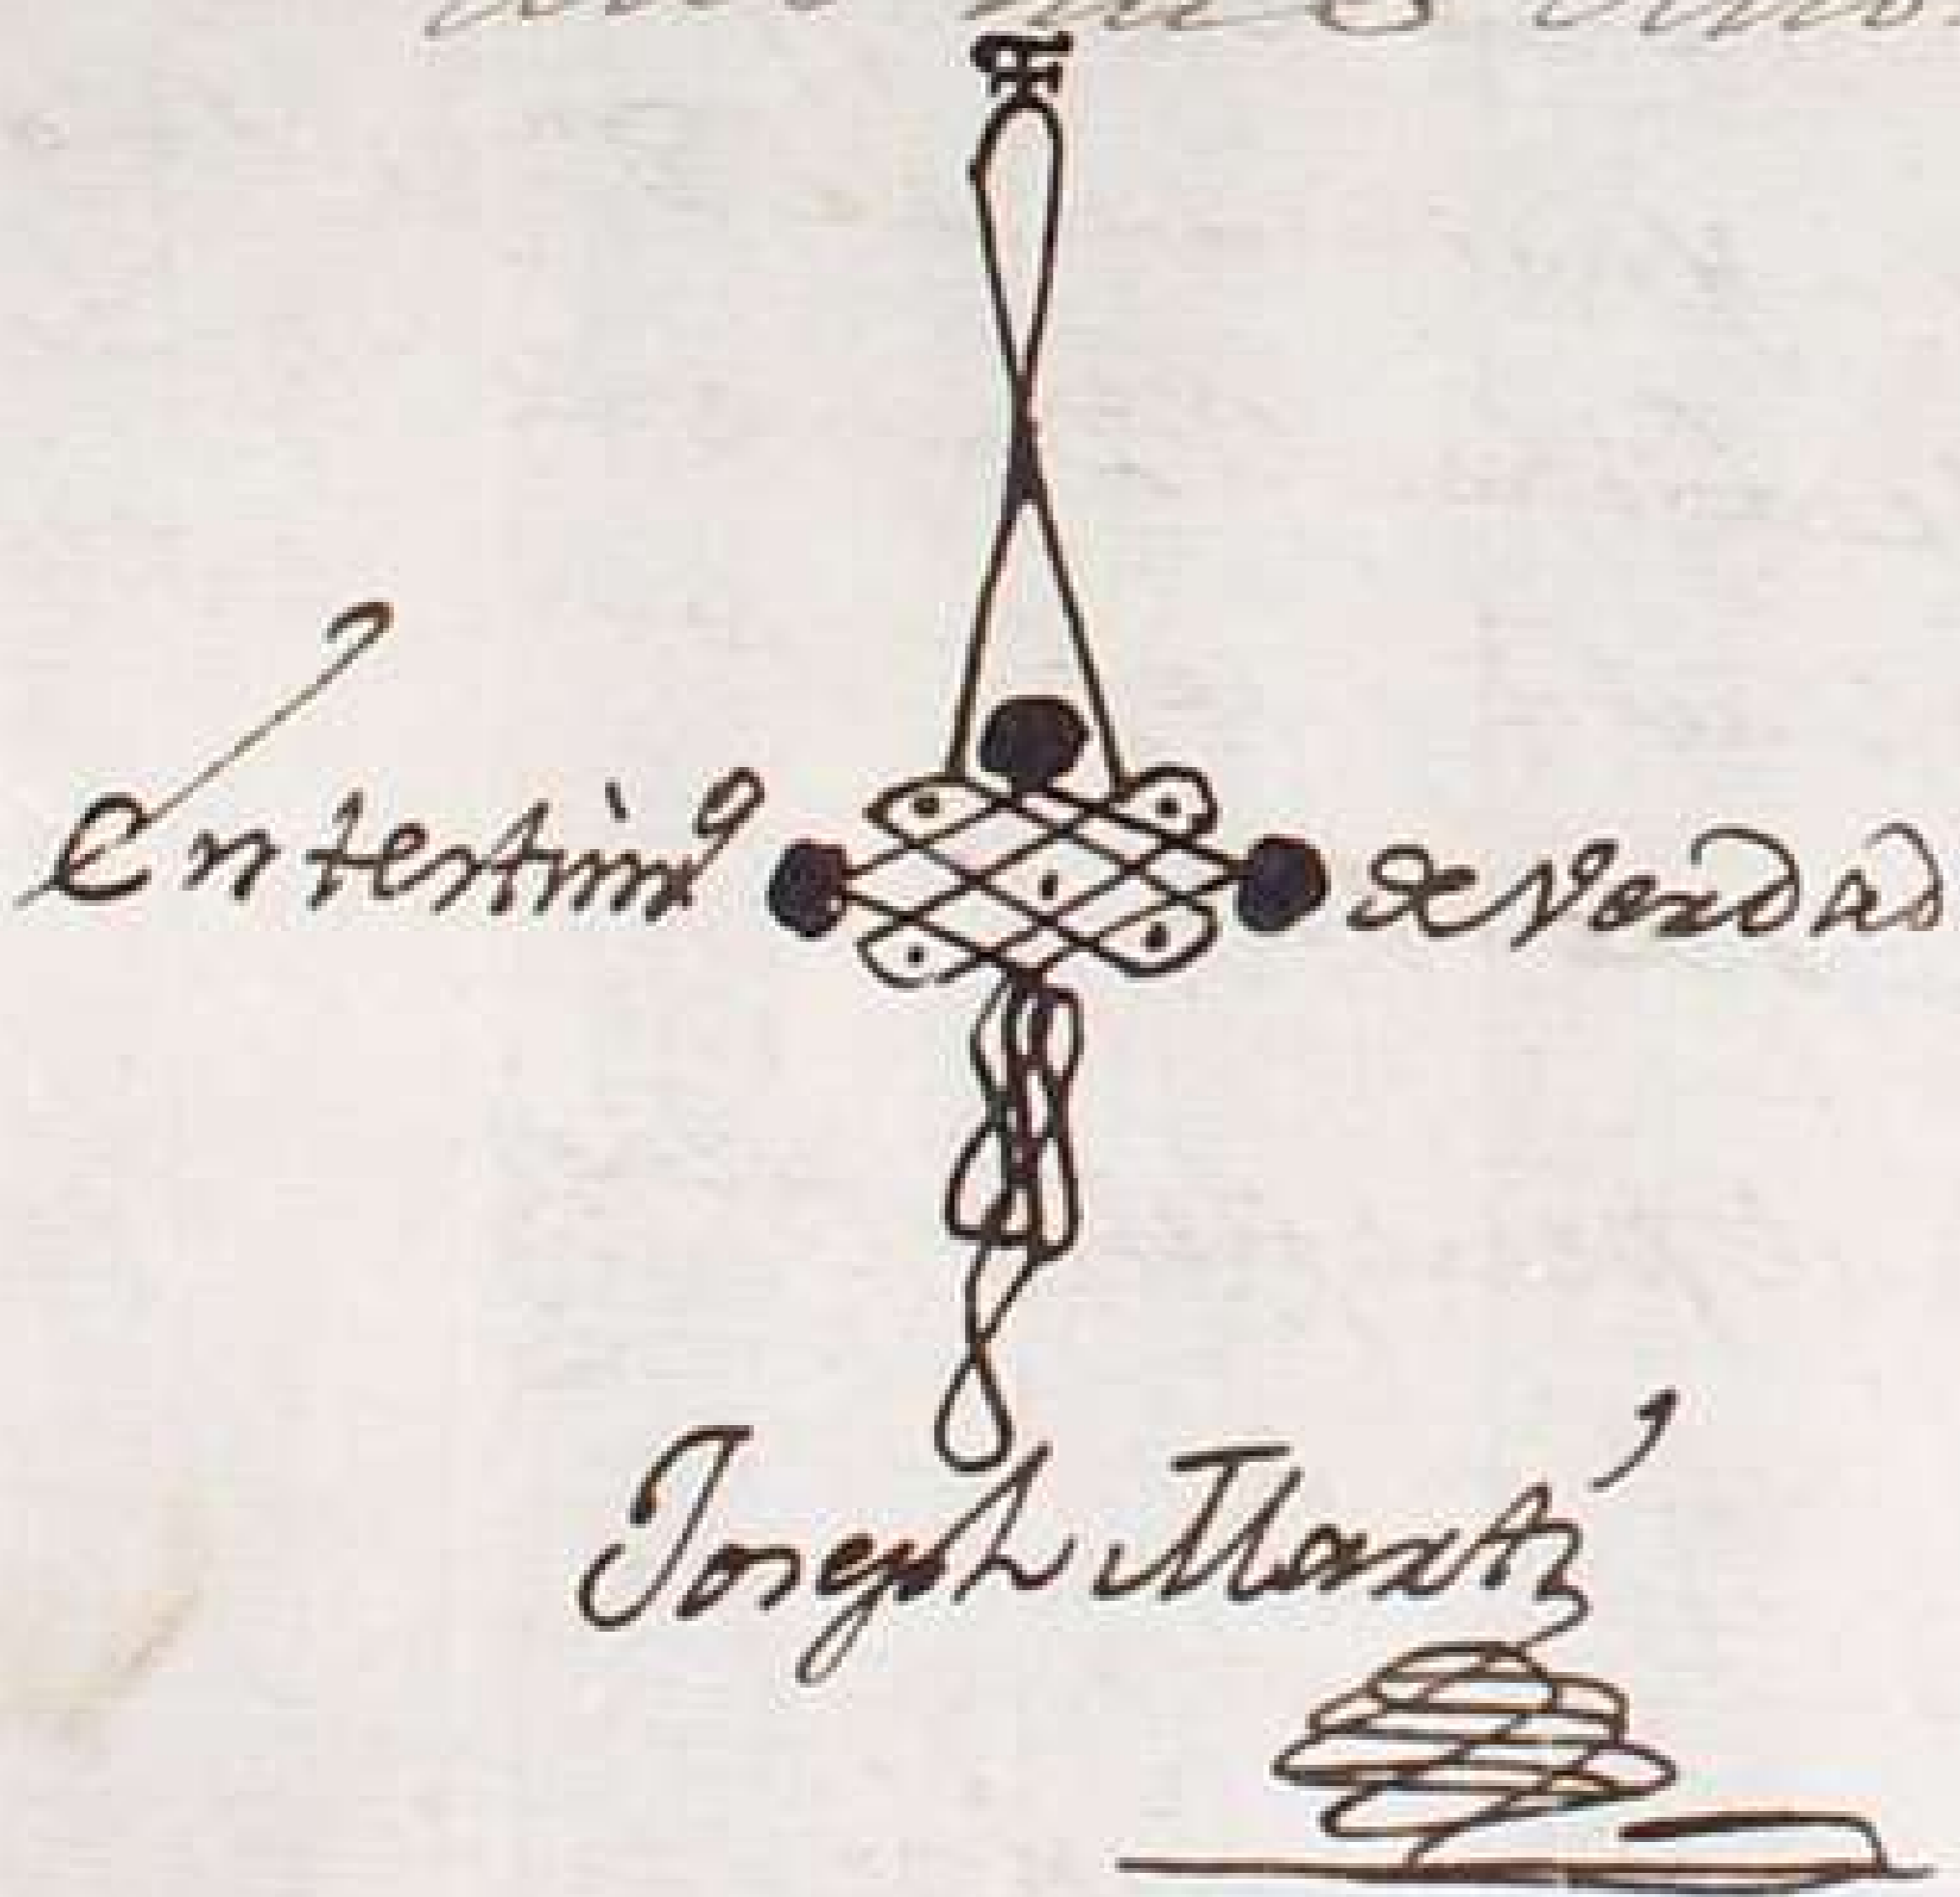 En testimo de verdad
Joseph Martí